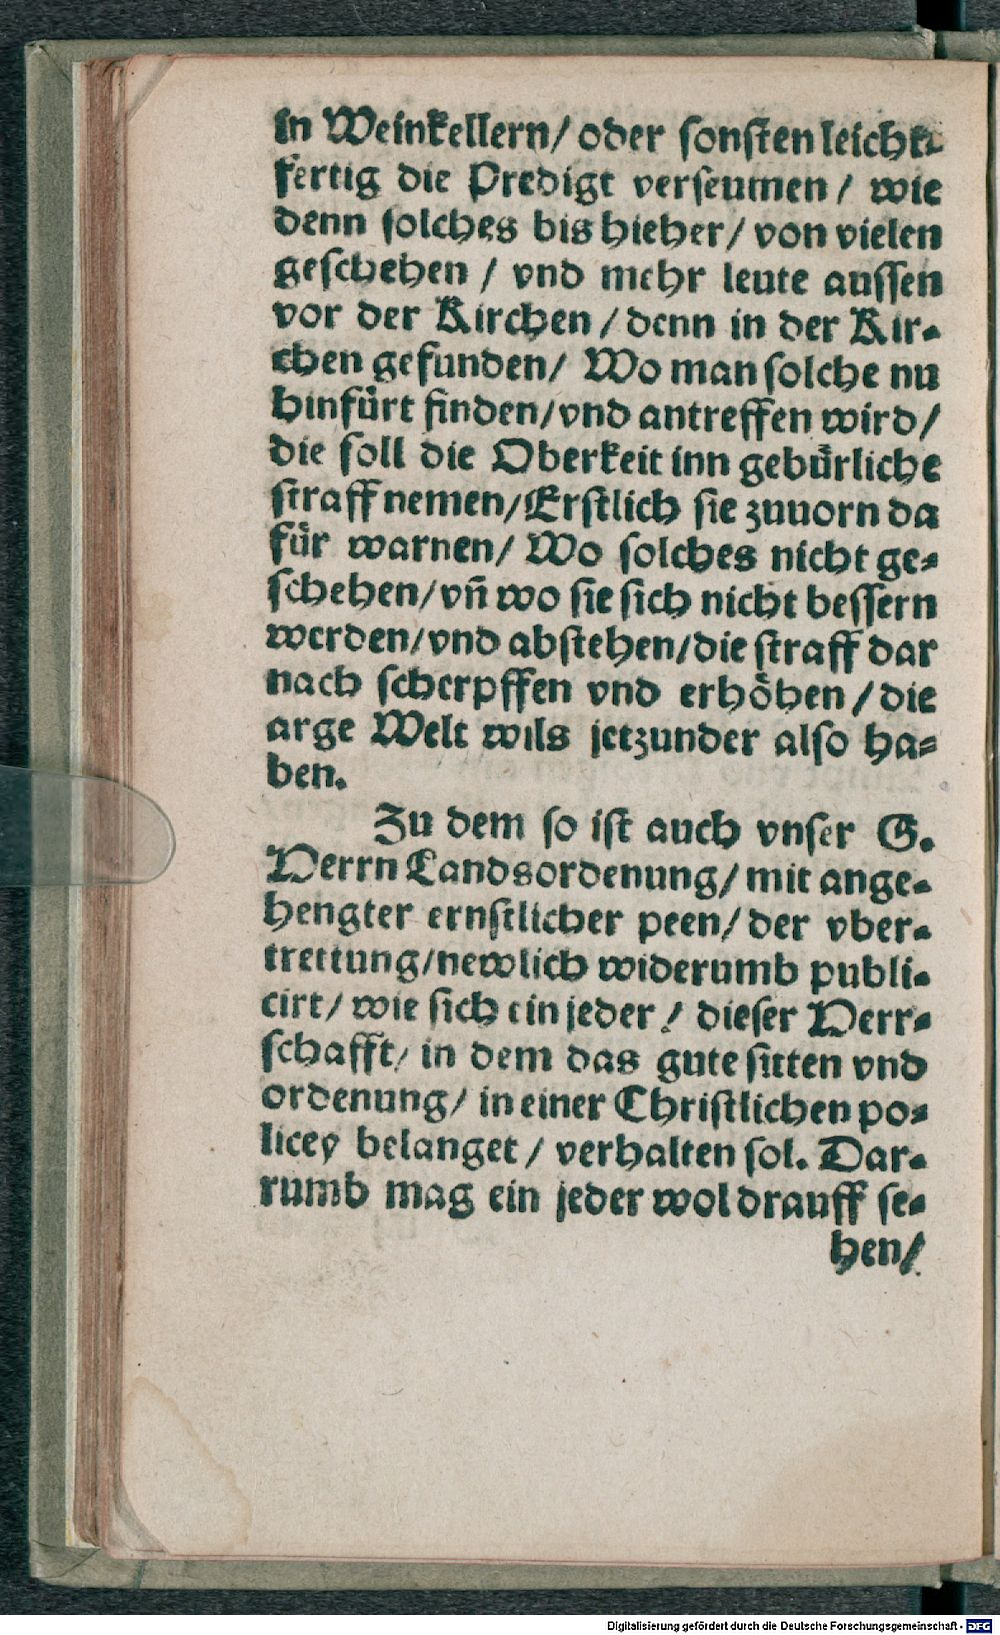 in Weinkellern/ oder sonsten leicht-
fertig die Predigt verseumen / wie
denn solches bis hieher/ von vielen
geschehen / vnd mehr leute aussen
vor der Kirchen / denn in der Kir-
chen gefunden/ Wo man solche nu
hinfürt finden/vnd antreffen wird/
die soll die Oberkeit inn gebürliche
straff nemen/Erstlich sie zuuorn da
für warnen/ Wo solches nicht ge-
schehen/vñ wo sie sich nicht bessern
werden/vnd abstehen/die straff dar
nach scherpffen vnd erhöhen / die
arge Welt wils jetzunder also ha-
ben.
Zu dem so ist auch vnser G.
Herrn Landsordenung/ mit ange-
hengter ernstlicher peen/ der vber-
trettung/newlich widerumb publi-
cirt/ wie sich ein jeder / dieser Herr-
schafft/ in dem das gute sitten vnd
ordenung/ in einer Christlichen po-
licey belanget / verhalten sol. Dar-
rumb mag ein jeder wol drauff se-
hen/
Digitalisierung gefördert durch die Deutsche Forschungsgemeinschaft - DFG